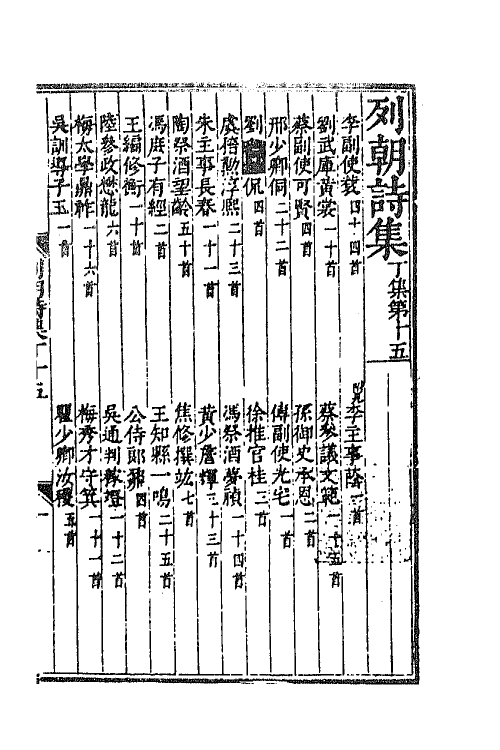 列朝詩集 丁集第十五
李副使莪 四十四首 兄李主事蔭 一首
劉武庫黃裳 一十首 蔡參議文範 一十五首
蔡副使可賢 四首 孫御史承恩 二首
邢少卿侗 二十二首 傅副使光宅 一首
劉 侃 四首 徐推官桂 三首
虞稽勳淳熙 二十三首 馮祭酒夢禎 一十四首
朱主事長春 一十一首 黃少詹輝 三十三首
陶祭酒望齡 五十首 焦修撰竑 七首
馮庶子有經 二首 王知縣一鳴 二十五首
王編修衡 一十首 公侍郎鼐 四首
陸參政懋龍 六首 吳通判稼竳 一十二首
梅太學鼎祚 一十六首 梅秀才守箕 一十一首
吳訓導子玉 一首 瞿少卿汝稷 五首